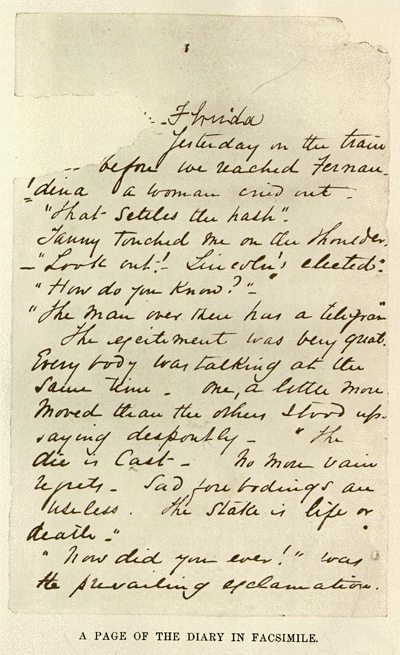 Florida
Yesterday on the train
before we reached Fernan-
dina a woman cried out -
"That settles the hash".
Tanny touched me on the shoulder.
- "Look out! - Lincoln's elected."
"How do you know?" -
"The man over there has a telegram"
The excitement was very great.
Every body was talking at the
same time - One, a little more
moved than the others stood up -
saying despondtly - "The
die is cast - No more vain
regrets - Sad forebodings are
useless. The stake is life or
death -"
"How did you ever!" was
the prevailing exclamation.
A PAGE OF THE DIARY IN FACSIMILE.